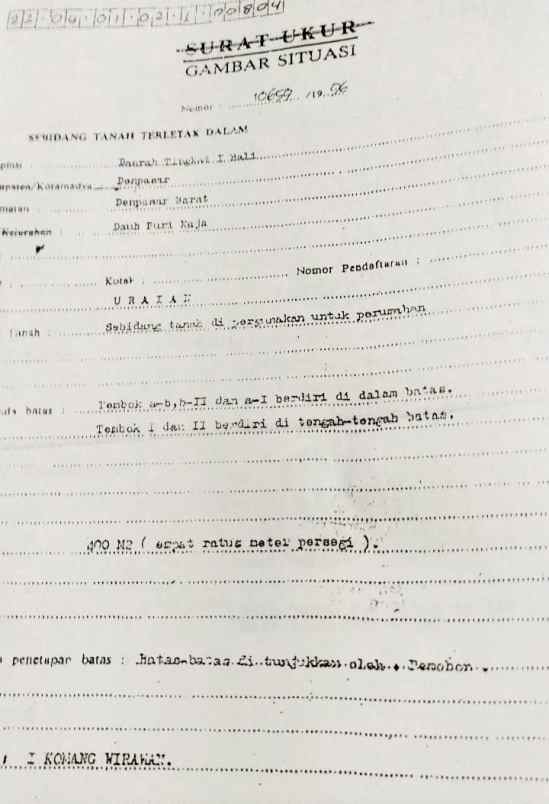 22.04.01.02.1.00804
SURAT UKUR
GAMBAR SITUASI
Nomor : 10659 /19 96
SEBIDANG TANAH TERLETAK DALAM
Daerah Tingkat I Bali
/Kotamadya Denpasar
Denpasar Barat
Kelurahan : Dauh Puri Kaja
Kotak : Nomor Pendaftaran :
URAIAN
Tanah : Sebidang tanah di pergunakan untuk perumahan
batas : Tembok a-b, b-II dan a-I berdiri di dalam batas.
Tembok I dan II berdiri di tengah-tengah batas.
400 M2 ( empat ratus meter persegi ).
penetapan batas : Batas-batas di tunjukkan oleh . Pemohon .
I KOMANG WIRAWAN.